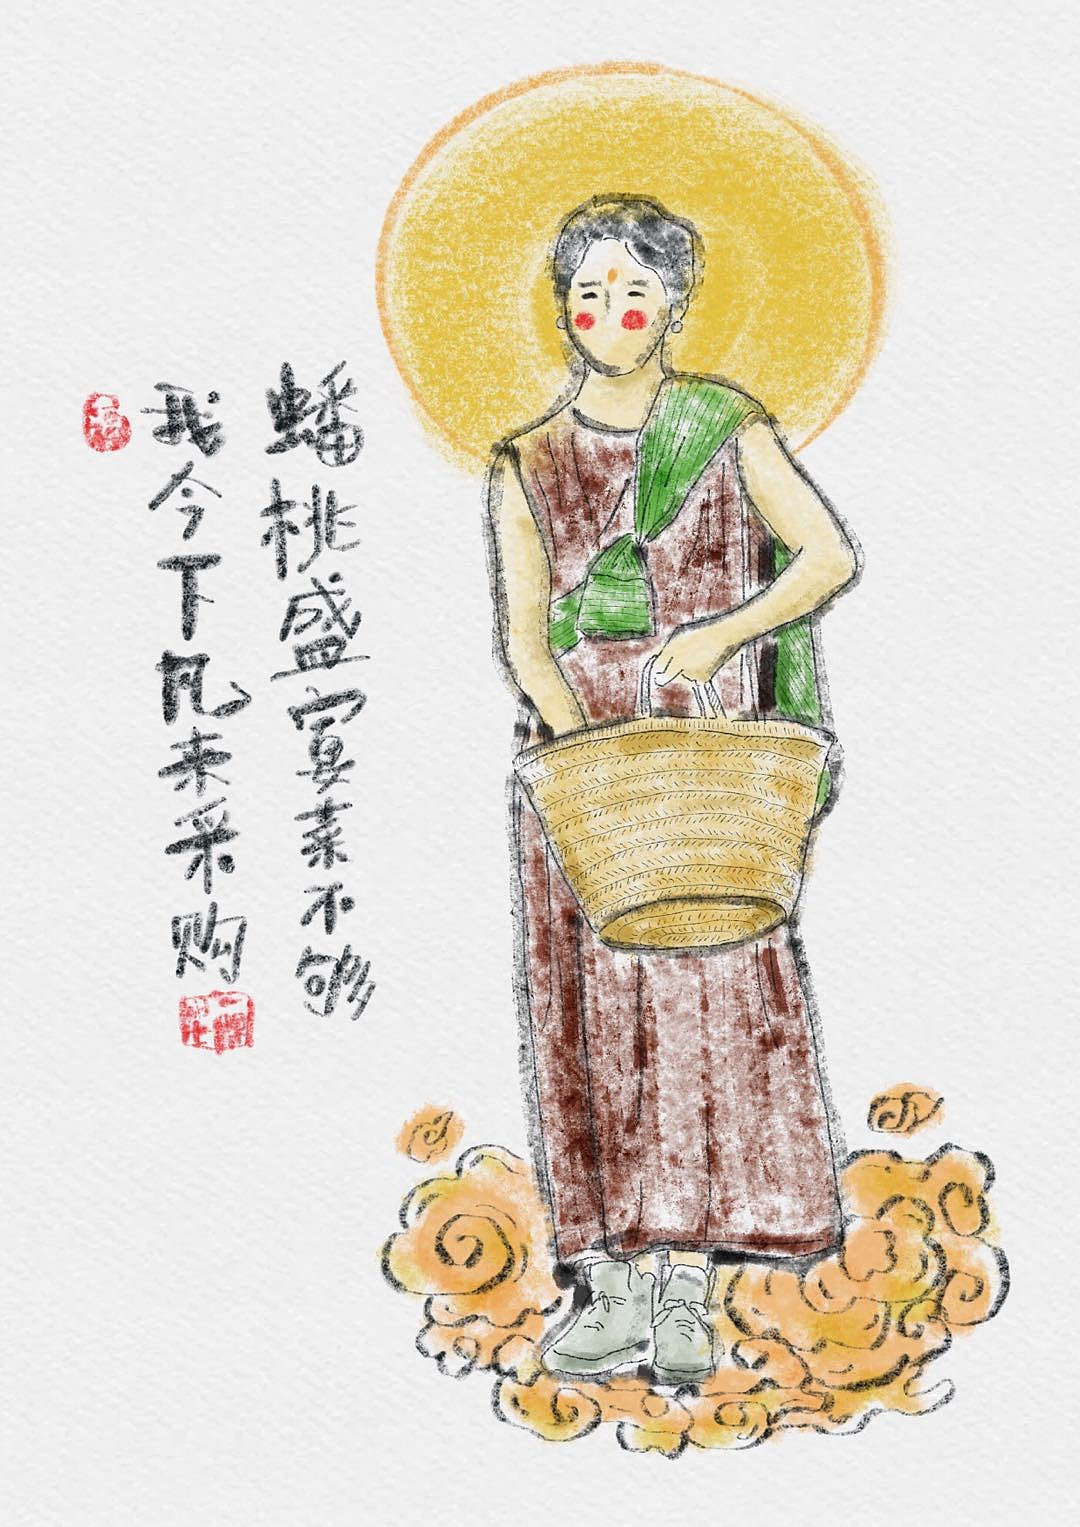 蟠桃盛宴菜不够
我今下凡来采购